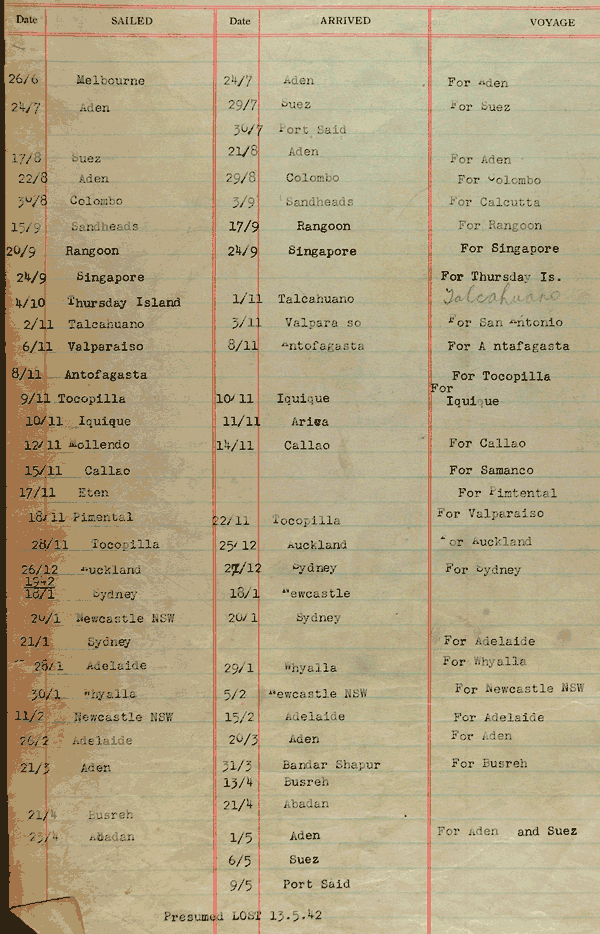 Date SAILED Date ARRIVED VOYAGE
26/6 Melbourne 24/7 Aden For Aden
24/7 Aden 29/7 Suez For Suez
30/7 Port Said
17/8 Suez 21/8 Aden For Aden
22/8 Aden 29/8 Colombo For Colombo
30/8 Colombo 3/9 Sandheads For Calcutta
15/9 Sandheads 17/9 Rangoon For Rangoon
20/9 Rangoon 24/9 Singapore For Singapore
24/9 Singapore For Thursday Is.
4/10 Thursday Island 1/11 Talcahuano Talcahuano
2/11 Talcahuano 3/11 Valpara so For San Antonio
6/11 Valparaiso 8/11 Antofagasta For A ntafagasta
8/11 Antofagasta For Tocopilla
9/11 Tocopilla 10/11 Iquique For Iquique
10/11 Iquique 11/11 Arica
12/11 Mollendo 14/11 Callao For Callao
15/11 Callao For Samanco
17/11 Eten For Pimtental
18/11 Pimental 22/11 Tocopilla For Valparaiso
28/11 Tocopilla 25/12 Auckland For Auckland
26/12 Auckland 27/12 Sydney For Sydney
1942
18/1 Sydney 18/1 Newcastle
20/1 Newcastle NSW 20/1 Sydney
21/1 Sydney For Adelaide
28/1 Adelaide 29/1 Whyalla For Whyalla
30/1 Whyalla 5/2 Newcastle NSW For Newcastle NSW
11/2 Newcastle NSW 15/2 Adelaide For Adelaide
26/2 Adelaide 20/3 Aden For Aden
21/3 Aden 31/3 Bandar Shapur For Busreh
13/4 Busreh
21/4 Busreh 21/4 Abadan
23/4 Abadan 1/5 Aden For Aden and Suez
6/5 Suez
9/5 Port Said
Presumed LOST 13.5.42